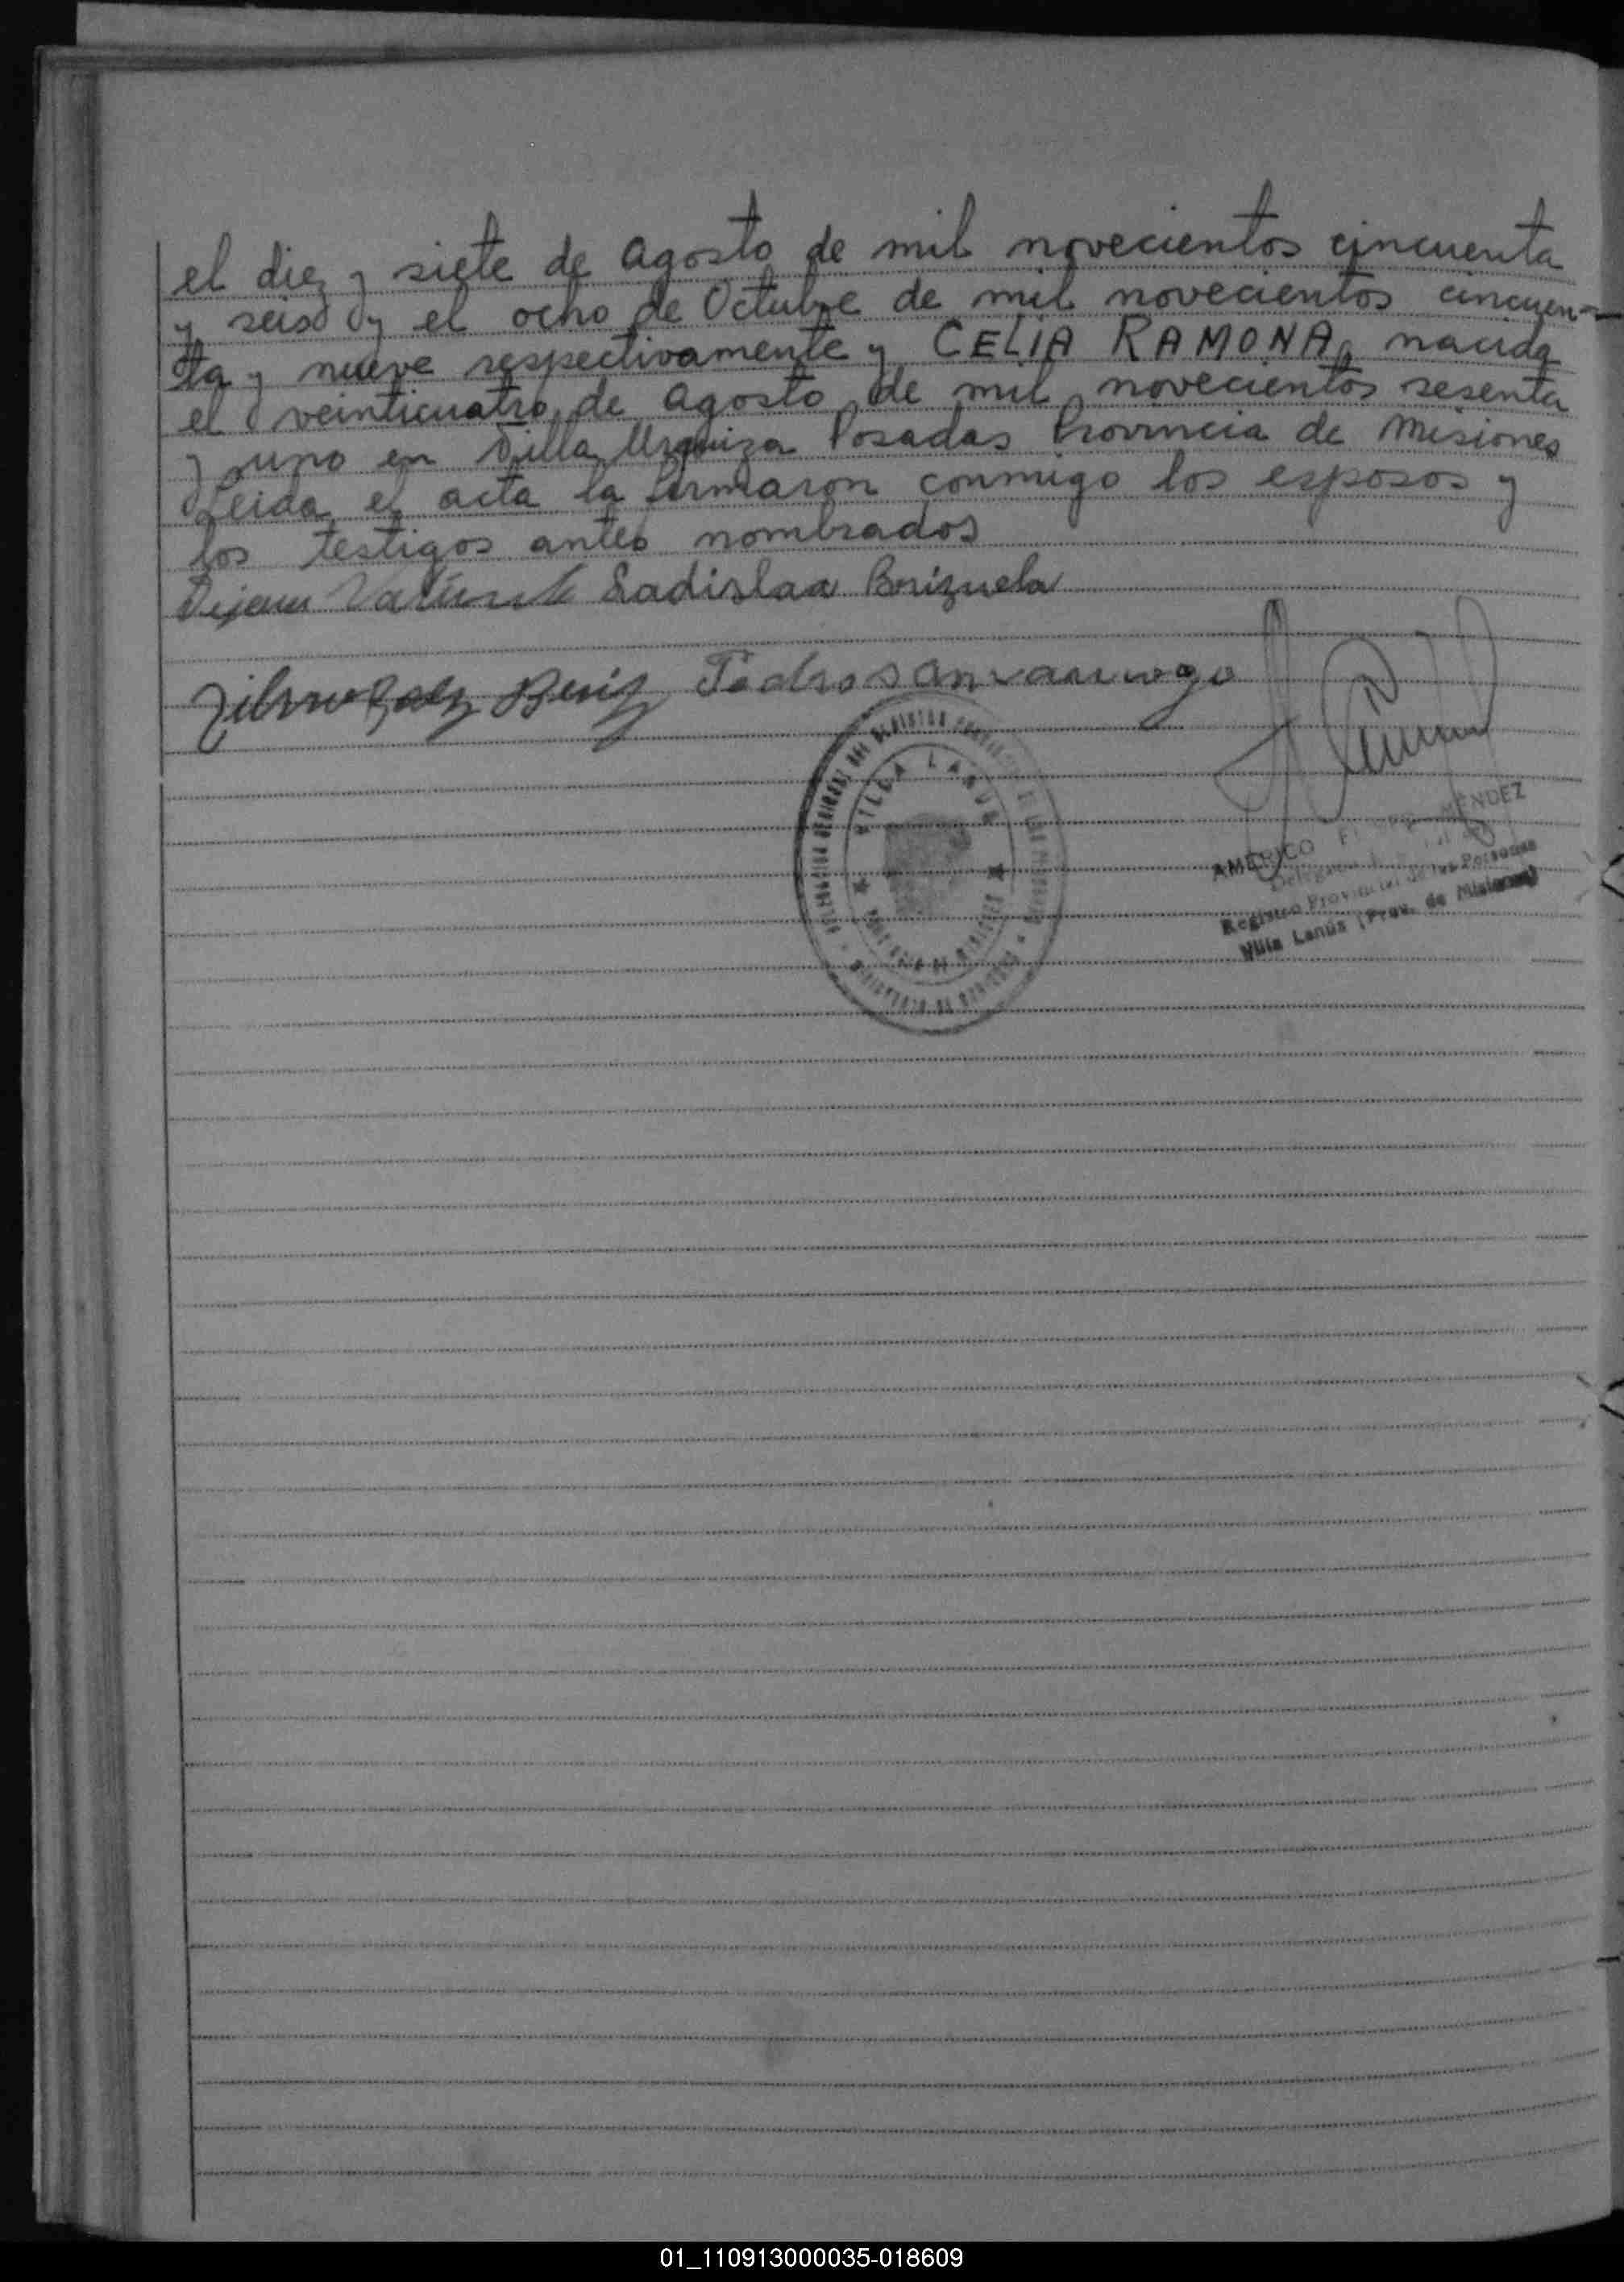 el diez y siete de Agosto de mil novecientos cincuenta
y seis y el ocho de Octubre de mil novecientos cincuen-
ta y nueve respectivamente y CELIA RAMONA, nacida
el veinticuatro de Agosto de mil novecientos sesenta
y uno en Villa Urquiza Posadas Provincia de Misiones
Leida el acta la firmaron conmigo los esposos y
los testigos antes nombrados
Ladislaa Brizuela
Pedro
VILLA LANUS
AMERICO MENDEZ
Registro Provincial de las Personas
Villa Lanús (Prov. de Misiones)
01_110913000035-018609